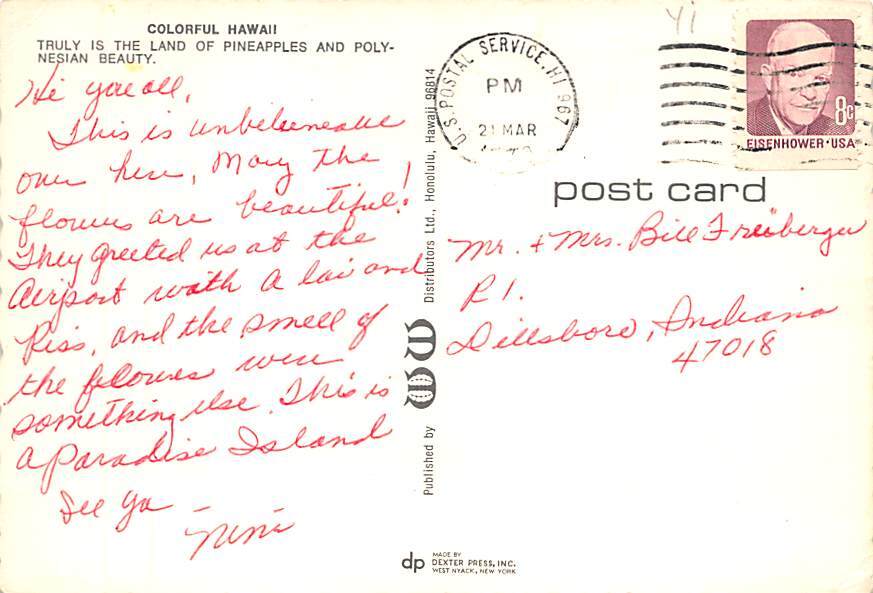 COLORFUL HAWAII
TRULY IS THE LAND OF PINEAPPLES AND POLY-
NESIAN BEAUTY.
Hi you all,
This is unbelieveable
over here, Mary the
flowers are beautiful!
They greeted us at the
Airport with a lai and
Kiss, and the smell of
the flowers were
something else. This is
a Paradise Island
See Ya
Published by
Distributors Ltd., Honolulu, Hawaii 96814
dp
MADE BY
DEXTER PRESS, INC.
WEST NYACK, NEW YORK
U.S. POSTAL SERVICE, HI 967
PM
21 MAR
8c
EISENHOWER·USA
post card
Mr. + Mrs. Bill Freiberger
R 1.
Dillsboro, Indiana
47018